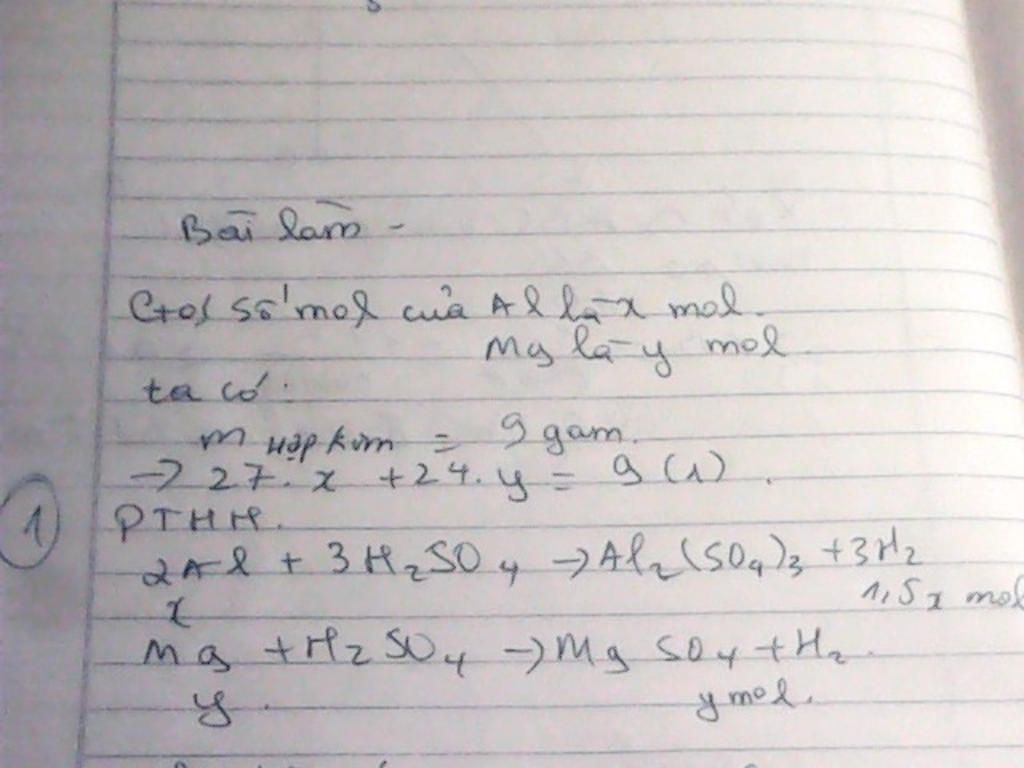 Bài làm -
Gọi số mol của Al là x mol.
Mg là y mol
ta có:
m hợp kim = 9 gam.
→ 27. x + 24. y = 9 (1).
1 PTHH.
2Al + 3H₂SO₄ → Al₂(SO₄)₃ + 3H₂
x 1,5x mol
Mg + H₂SO₄ → MgSO₄ + H₂.
y. y mol.